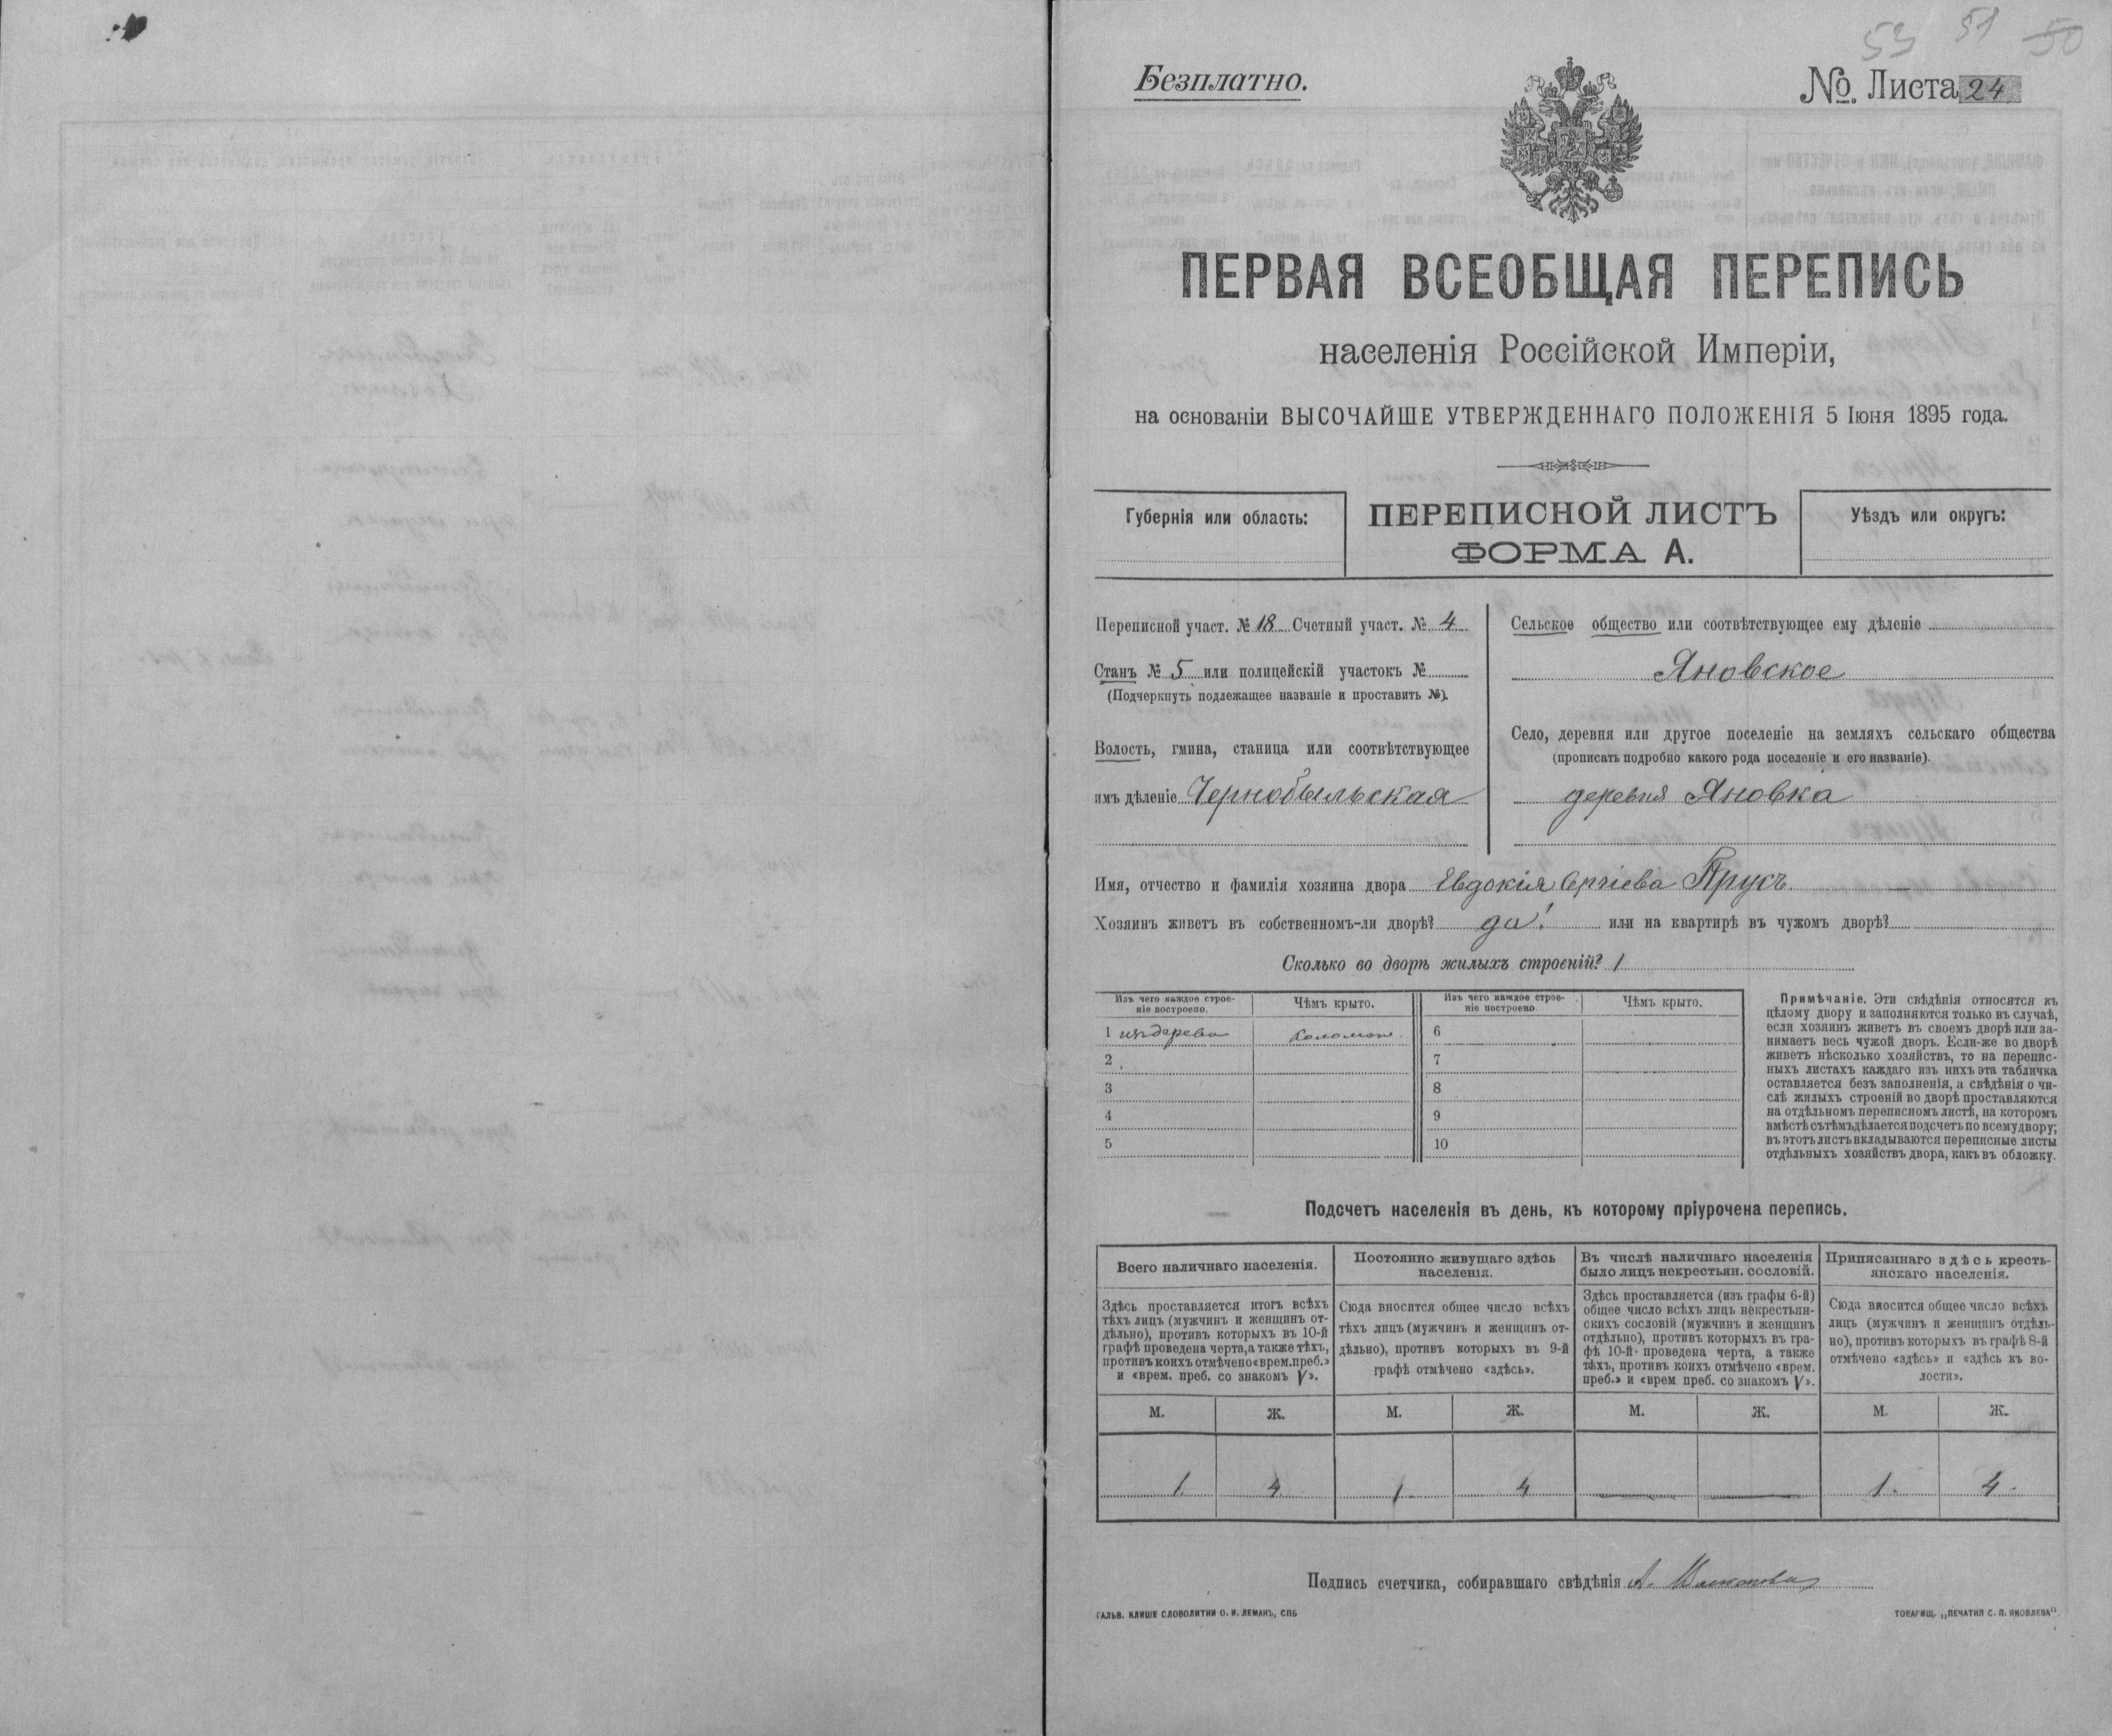 53 51 50
Безплатно.
№ Листа 24
ПЕРВАЯ ВСЕОБЩАЯ ПЕРЕПИСЬ
населенія Россійской Имперіи,
на основаніи ВЫСОЧАЙШЕ УТВЕРЖДЕННАГО ПОЛОЖЕНІЯ 5 Іюня 1895 года.
Губернія или область:
ПЕРЕПИСНОЙ ЛИСТЪ
ФОРМА А.
Уѣздъ или округъ:
Переписной участ. № 18 Счетный участ. № 4
Станъ № 5 или полицейскій участокъ №
(Подчеркнуть подлежащее названіе и проставить №).
Волость, гмина, станица или соотвѣтствующее
имъ дѣленіе Чернобыльская
Сельское общество или соотвѣтствующее ему дѣленіе
Яновское
Село, деревня или другое поселеніе на земляхъ сельскаго общества
(прописать подробно какого рода поселеніе и его названіе).
деревня Яновка
Имя, отчество и фамилія хозяина двора Евдокія Сергіева Прусъ
Хозяинъ живетъ въ собственномъ-ли дворѣ? да! или на квартирѣ въ чужомъ дворѣ?
Сколько во дворѣ жилыхъ строеній? 1
Изъ чего каждое строе-
ніе построено.
Чѣмъ крыто.
Изъ чего каждое строе-
ніе построено.
Чѣмъ крыто.
1 изъ дерева соломою 6
2 7
3 8
4 9
5 10
Примѣчаніе. Эти свѣдѣнія относятся къ
цѣлому двору и заполняются только въ случаѣ,
если хозяинъ живетъ въ своемъ дворѣ или за-
нимаетъ весь чужой дворъ. Если-же во дворѣ
живетъ нѣсколько хозяйствъ, то на перепис-
ныхъ листахъ каждаго изъ нихъ эта табличка
оставляется безъ заполненія, а свѣдѣнія о чи-
слѣ жилыхъ строеній во дворѣ проставляются
на отдѣльномъ переписномъ листѣ, на которомъ
вмѣстѣ съ тѣмъ дѣлается подсчетъ по всему двору;
въ этотъ листъ вкладываются переписные листы
отдѣльныхъ хозяйствъ двора, какъ въ обложку.
Подсчетъ населенія въ день, къ которому пріурочена перепись.
Всего наличнаго населенія.
Здѣсь проставляется итогъ всѣхъ
тѣхъ лицъ (мужчинъ и женщинъ от-
дѣльно), противъ которыхъ въ 10-й
графѣ проведена черта, а также тѣхъ,
противъ коихъ отмѣчено «врем. преб.»
и «врем. преб. со знакомъ V».
Постоянно живущаго здѣсь
населенія.
Сюда вносится общее число всѣхъ
тѣхъ лицъ (мужчинъ и женщинъ от-
дѣльно), противъ которыхъ въ 9-й
графѣ отмѣчено «здѣсь».
Въ числѣ наличнаго населенія
было лицъ некрестьян. сословій.
Здѣсь проставляется (изъ графы 6-й)
общее число всѣхъ лицъ некрестьян-
скихъ сословій (мужчинъ и женщинъ
отдѣльно), противъ которыхъ въ гра-
фѣ 10-й проведена черта, а также
тѣхъ, противъ коихъ отмѣчено «врем.
преб.» и «врем преб. со знакомъ V».
Приписаннаго здѣсь кресть-
янскаго населенія.
Сюда вносится общее число всѣхъ
лицъ (мужчинъ и женщинъ отдѣль-
но), противъ которыхъ въ графѣ 8-й
отмѣчено «здѣсь» и «здѣсь къ во-
лости».
М. Ж. М. Ж. М. Ж. М. Ж.
1. 4 1. 4 — — 1. 4.
Подпись счетчика, собиравшаго свѣдѣнія А.
ГАЛЬВ. КЛИШЕ СЛОВОЛИТНИ О. И. ЛЕМАНЪ, СПБ
ТОВАРИЩ. „ПЕЧАТНЯ С. П. ЯКОВЛЕВА".